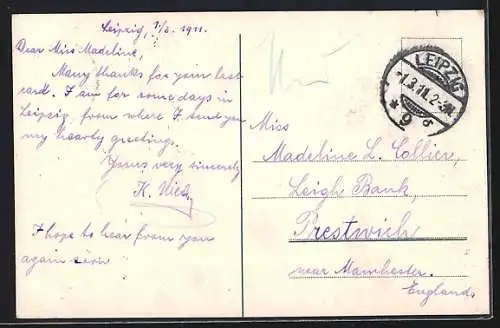 Leipzig, 1/3. 1911.
Dear Miss Madeline,
Many thanks for your last
card. I am for some days in
Leipzig, from where I send you
my hearty greetings.
Yours very sincerely
K.
I hope to hear from you
again soon
LEIPZIG
-1.3.11.2-3N.
* 9
Miss
Madeline L. Collier,
Leigh Bank,
Prestwich
near Manchester.
England